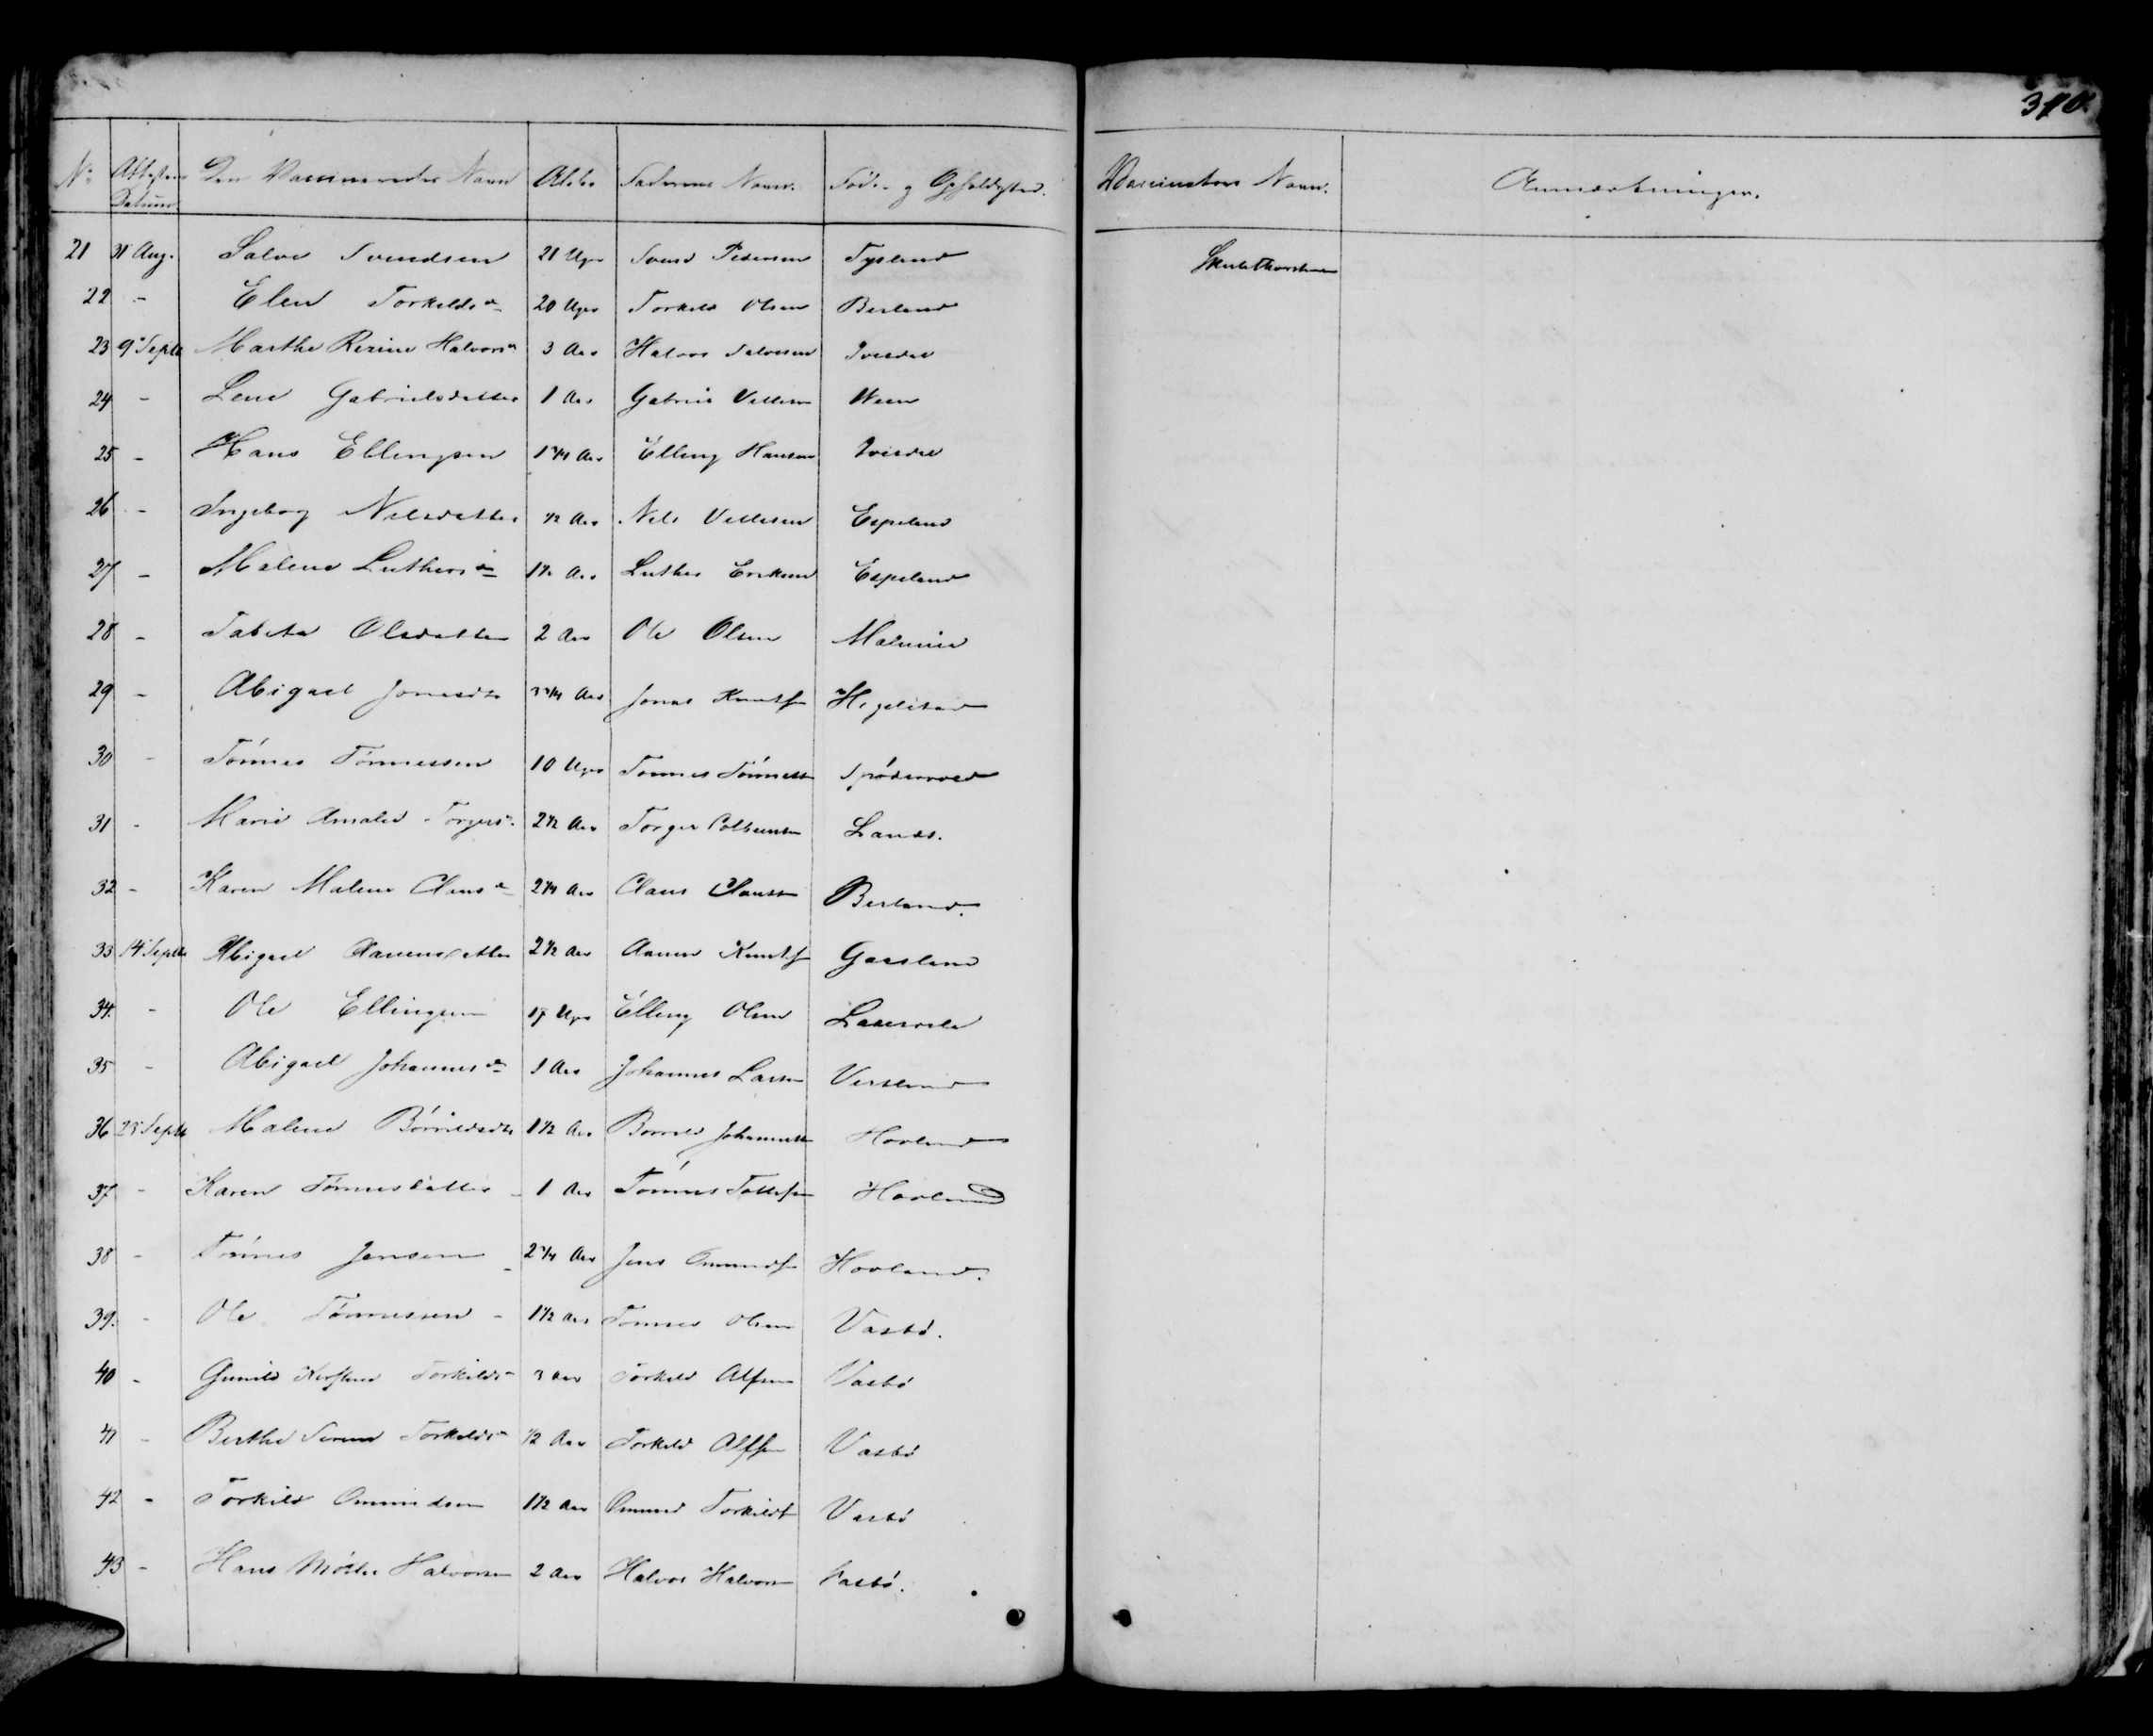 310.
No Attestens Datum Den Vaccineredes Navn Alder Faderens Navn. Føde- og Opholdssted. Vaccinators Navn. Anmærkninger.
21 31 Aug. Salve Svendsen 21 Uger Svend Pedersen Tysland
22 - Elen Torkilds 20 Uger Torkild Olsen Berland
23 9 Septb Marthe Halvors 3 Aar Halvor Salvesen
24 - Lene Gabrielsdatter 1 Aar Gabriel
25 - Hans Ellingsen 1 3/4 Aar Elling Hansen
26 - Ingeborg Nelsdatter 1/2 Aar Nels Espeland
27 - Malene Luthers 1 1/2 Aar Luther Eriksen Espeland
28 - Tabita Olsdatter 2 Aar Ole Olsen
29 - Abigael Jonasdtr Aar Jonas Knuts Hegelstad
30 - Tönnes Tönnessen 10 Uger Tönnes Tönness
31 - Marie Amalie Torgers 2 1/2 Aar Torger Lande.
32 - Karen Malene Claus 2 1/4 Aar Claus Clauss Berland.
33 14 Septb Abigael Aanensdatter 2 1/2 Aar Aanen Knuts Gaasland
34. - Ole Ellingsen 17 Uger Elling Olsen
35 - Abigael Johannes 1 Aar Johannes Larsen
36 25 Septb Malene 1 1/2 Aar Johanness Hovland
37 - Karen Tönnesdatter - 1 Aar Tönnes Tollefsen Hovland
38 - Tönnes Jensen - Aar Jens Ommunds Hovland.
39. - Ole Tönnessen - 1 1/2 Aar Tönnes Olsen Vasbö.
40 - Gunild Torkilds 3 Aar Torkild Alfsen Vasbö
41 - Berthe Serine Torkilds 1/2 Aar Torkild Alfsen Vasbö
42 - Torkild Ommundsen 1 1/2 Aar Ommund Torkilds Vasbö
43 - Hans Halvorsen 2 Aar Halvor Halvorsen Vasbö.